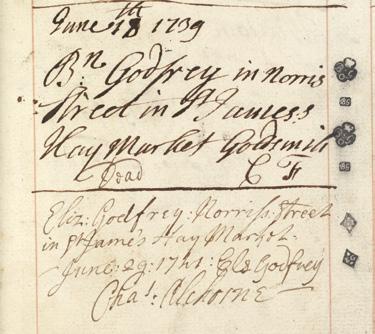 June 18th 1739
Bn. Godfrey in Norris
Street in St. James's
Hay Market Goldsmith
Dead
Eliz: Godfrey: Norris: Street
in St James Hay Market.
June: 29: 1741: Elz Godfrey
Chas. Alchorne